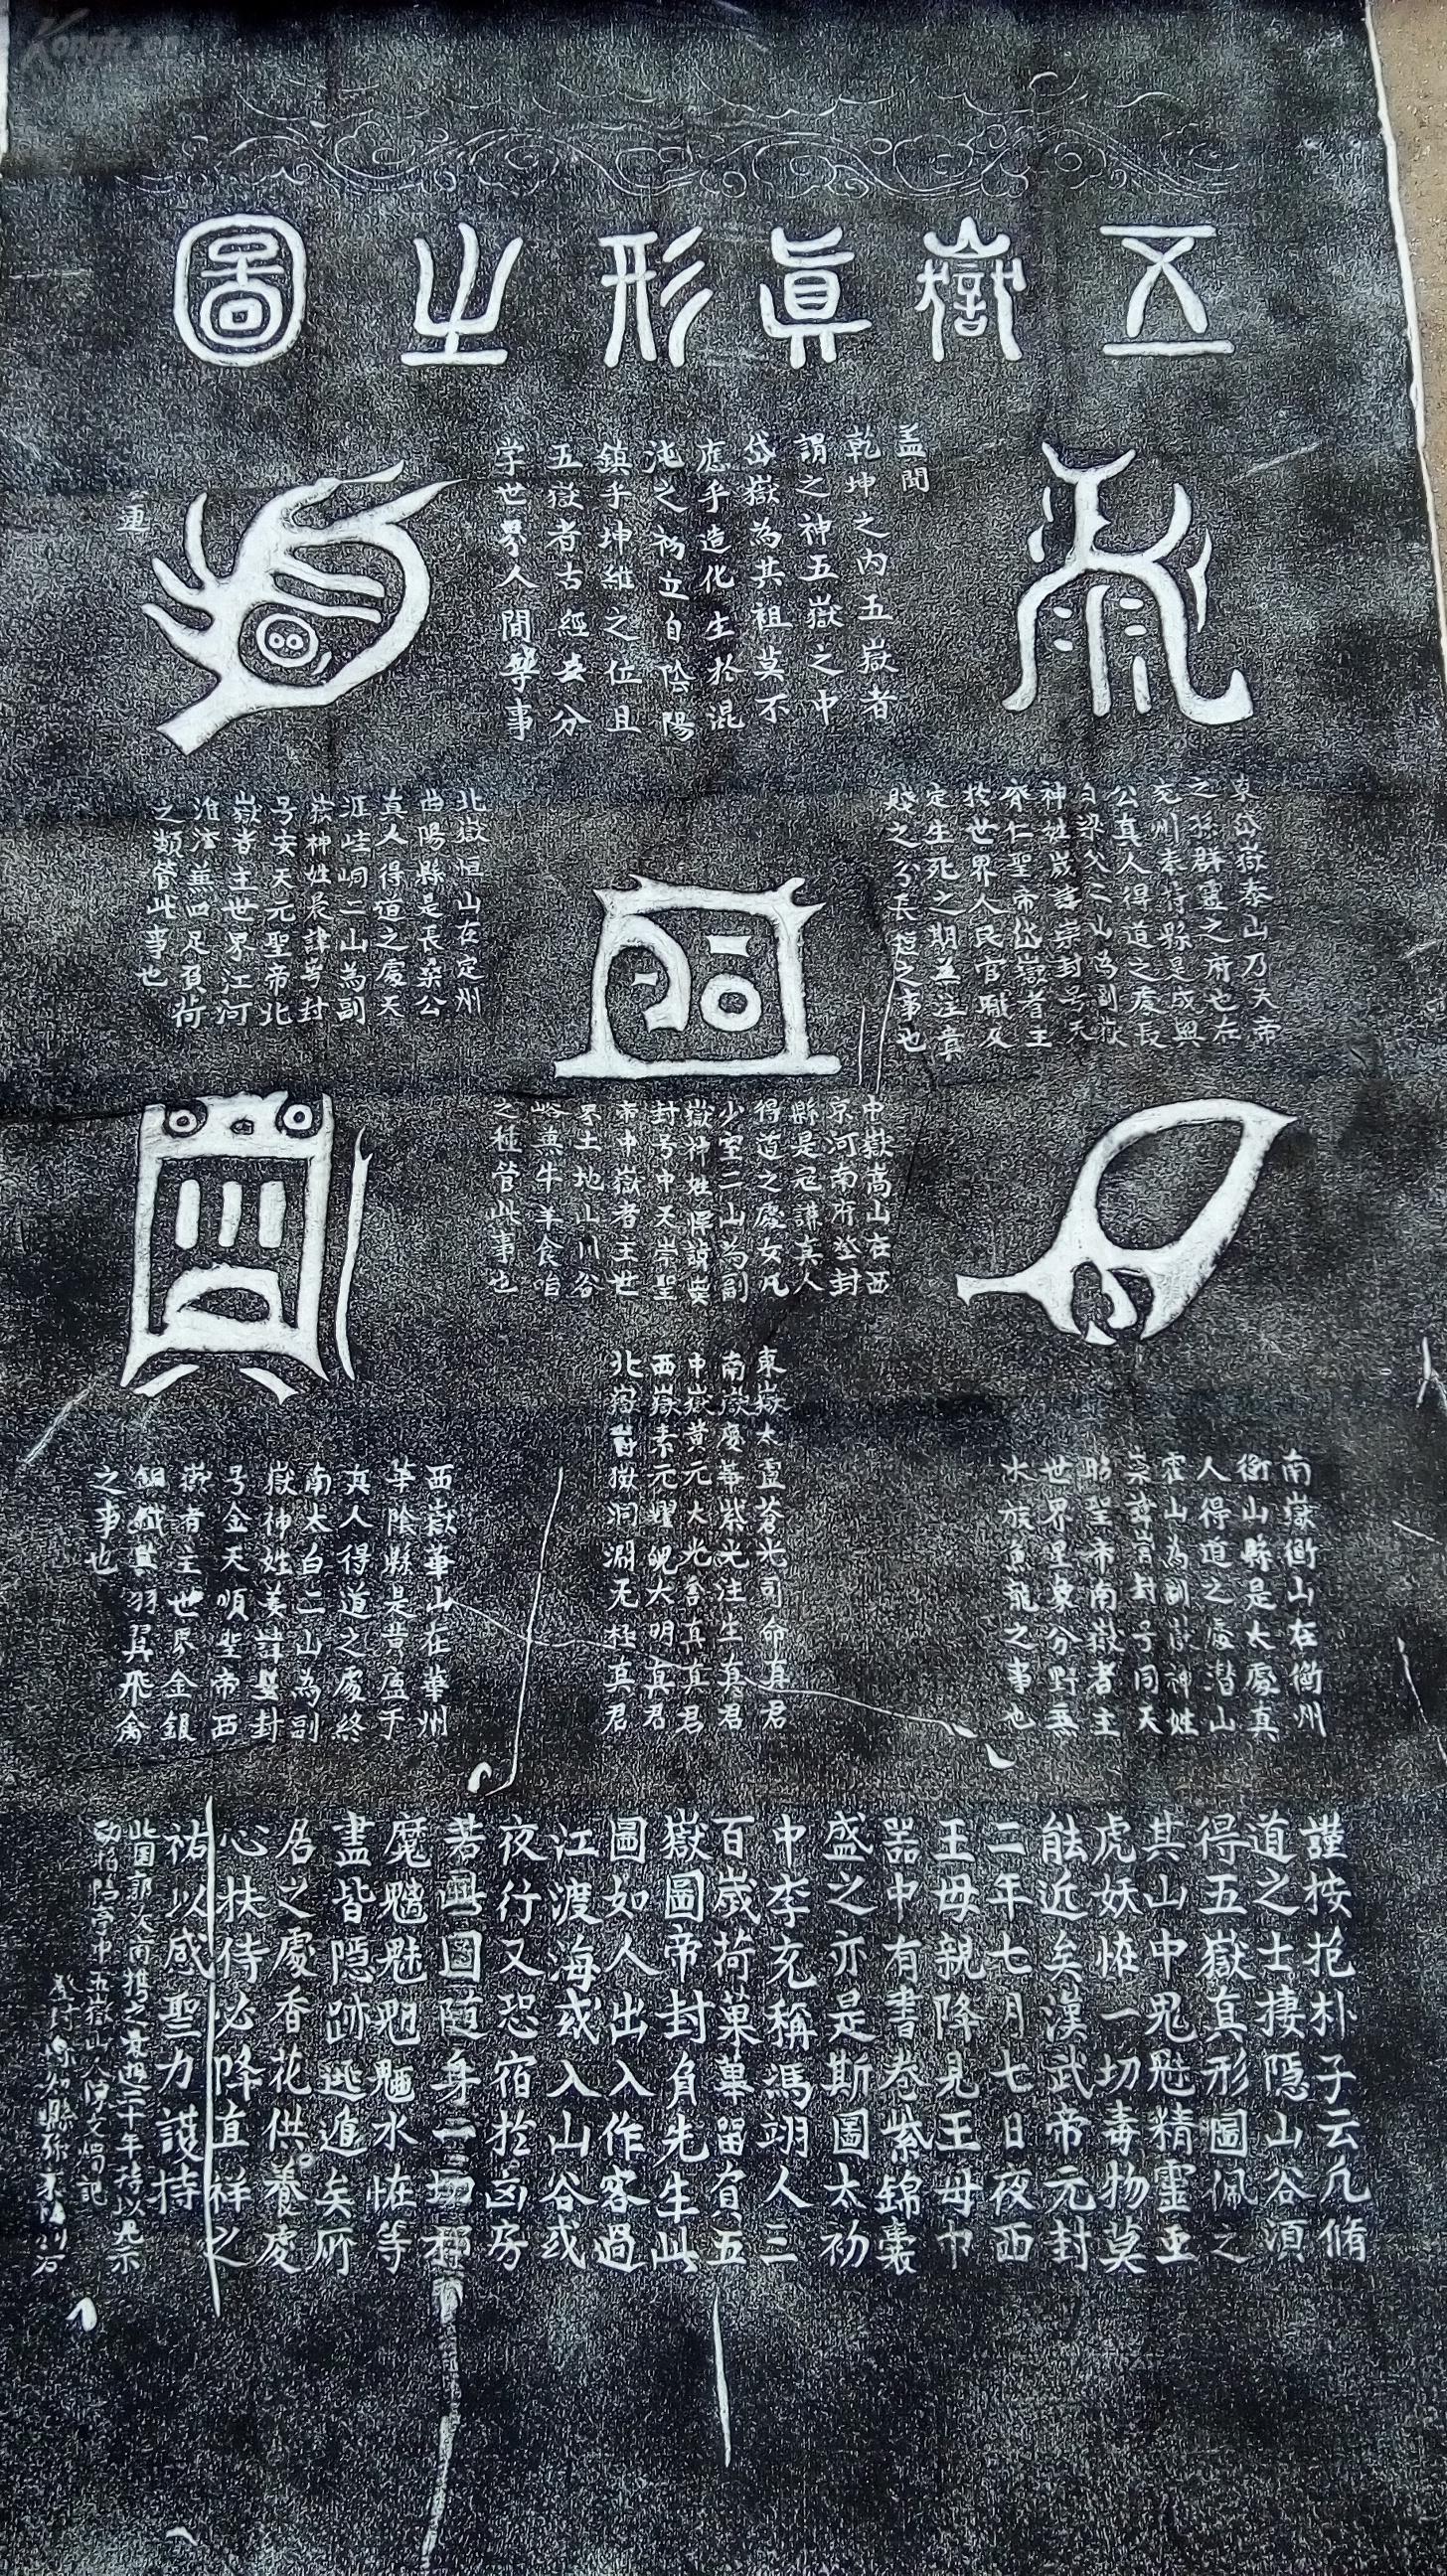 五嶽真形之圖
盖聞
乾坤之内五嶽者
謂之神五嶽之中
岱嶽為其祖莫不
應乎造化生於混
沌之初立自陰陽
鎮乎坤維之位且
五嶽者古經云分
学世界人間等事
東岱嶽泰山乃天帝
之孫群靈之府也在
兖州奉符縣是成興
公真人得道之處長
白梁父二山為副嶽
神姓歲諱崇封号天
齊仁聖帝岱嶽者主
於世界人民官職及
定生死之期兼注貴
賤之分長短之事也
北嶽恒山在定州
曲陽縣是長桑公
真人得道之處天
涯崆峒二山為副
嶽神姓晨諱崿封
号安天元聖帝北
嶽者主世界江河
淮濟兼四足負荷
之類管此事也
中嶽嵩山在西
京河南府登封
縣是寇謙真人
得道之處女几
少室二山為副
嶽神姓惲諱
封号中天崇聖
帝中嶽者主世
界土地山川谷
峪兼牛羊食啗
之種管此事也
南嶽衡山在衡州
衡山縣是太處真
人得道之處潛山
霍山為副嶽神姓
崇封号司天
昭聖帝南嶽者主
世界星象分野兼
水族魚龍之事也
西嶽華山在華州
華陰縣是昔盧手
真人得道之處終
南太白二山為副
嶽神姓姜諱封
号金天順聖帝西
嶽者主世界金銀
銅鐵兼羽翼飛禽
之事也
東嶽太靈蒼光司命真君
南嶽慶華紫光注生真君
中嶽黄元大光含真真君
西嶽素元耀魄大明真君
北嶽欝微洞淵无極真君
謹按抱朴子云凢脩
道之士棲隱山谷湏
得五嶽真形圖佩之
其山中鬼魅精靈䖝
虎妖恠一切毒物莫
能近矣漢武帝元封
二年七月七日夜西
王母親降見王母巾
器中有書卷紫錦囊
盛之亦是斯圖太初
中李充稱馮翊人三
百歲荷菓畢畱負五
嶽圖帝封負先生此
圖如人出入作客過
江渡海或入山谷或
夜行又恐宿於凶房
若興圖随身一切邪
魔魑魅魍魎水恠等
盡皆隱跡遁矣所
居之處香花供養處
心扶侍必降直祥之
祐以感聖力護持